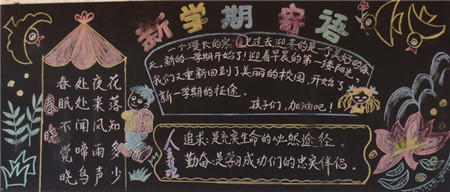 新学期寄语
春晓
春眠不觉晓
处处闻啼鸟
夜来风雨声
花落知多少
一个漫长的寒假已过去,迎来的是一个美好的春
天,新的一学期开始了!迎着早晨的第一缕阳光,
我们又重新回到了美丽的校园,开始了
新一学期的征途。
孩子们,加油吧!
追求:是充实生命的必然途径。
勤奋:是学习成功们的忠实伴侣。